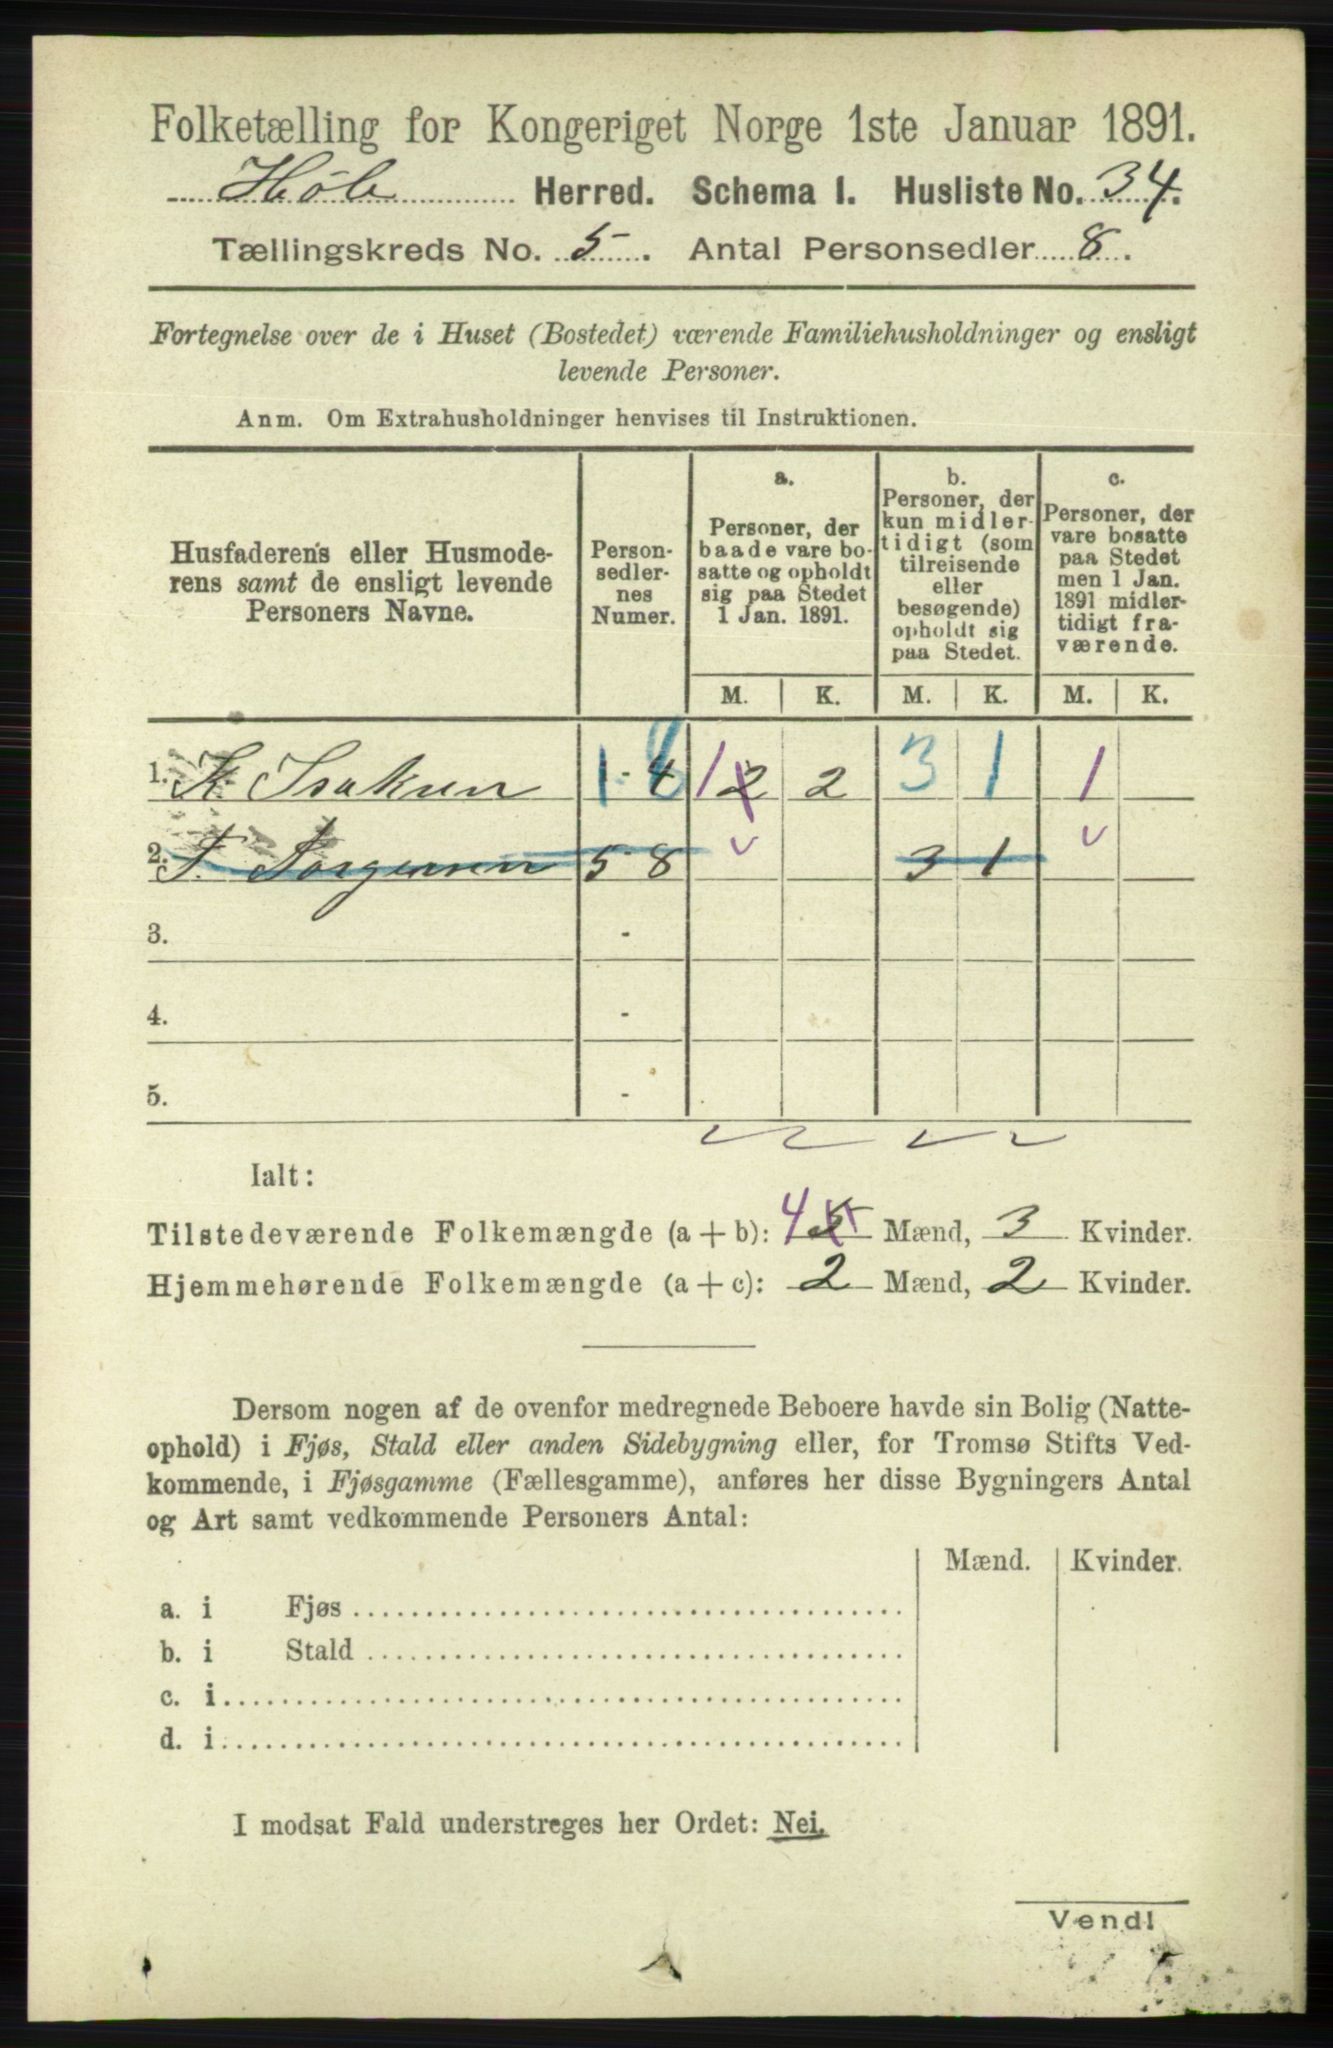 Folketælling for Kongeriget Norge 1ste Januar 1891.
Høle Herred. Schema I. Husliste No. 34.
Tællingskreds No. 5. Antal Personsedler 8.
Fortegnelse over de i Huset (Bostedet) værende Familiehusholdninger og ensligt
levende Personer.
Anm. Om Extrahusholdninger henvises til Instruktionen.
Husfaderens eller Husmode-
rens samt de ensligt levende
Personers Navne.
Person-
sedler-
nes
Numer.
a.
Personer, der
baade vare bo-
satte og opholdt
sig paa Stedet
1 Jan. 1891.
b.
Personer, der
kun midler-
tidigt (som
tilreisende
eller
besøgende)
opholdt sig
paa Stedet.
c.
Personer, der
vare bosatte
paa Stedet
men 1 Jan.
1891 midler-
tidigt fra-
værende.
M. K. M. K. M. K.
1. K. Isaksen 1 - 8 1 2 2 3 1 1
2. T. Torgersen 5 8 3 1
3. -
4. -
5. -
Ialt:
Tilstedeværende Folkemængde (a + b): 4 5 Mænd, 3 Kvinder.
Hjemmehørende Folkemængde (a + c): 2 Mænd, 2 Kvinder.
Dersom nogen af de ovenfor medregnede Beboere havde sin Bolig (Natte-
ophold) i Fjøs, Stald eller anden Sidebygning eller, for Tromsø Stifts Ved-
kommende, i Fjøsgamme (Fællesgamme), anføres her disse Bygningers Antal
og Art samt vedkommende Personers Antal:
Mænd. Kvinder.
a. i Fjøs
b. i Stald
c. i
d. i
I modsat Fald understreges her Ordet: Nei.
Vend!